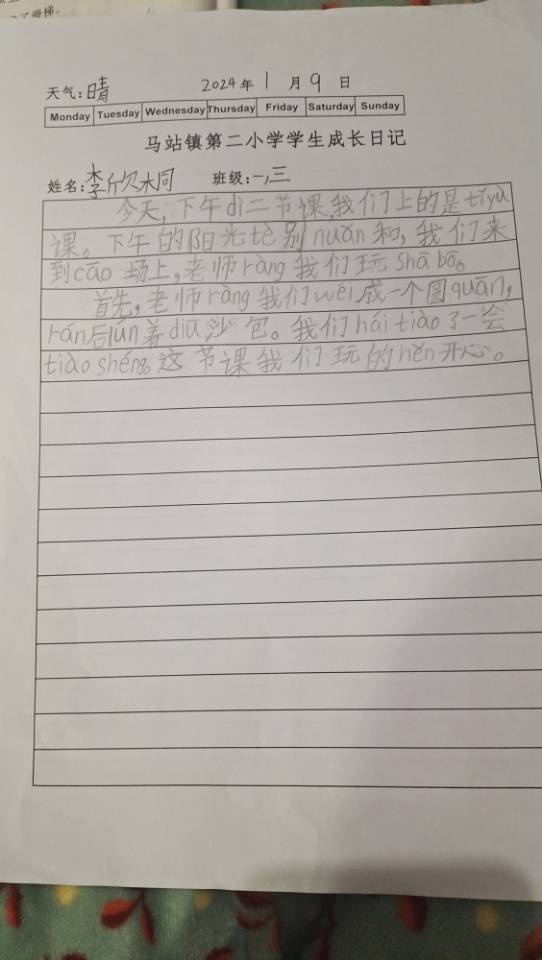 了滑梯。
天气:晴 2024年 1 月 9 日
Monday Tuesday Wednesday Thursday Friday Saturday Sunday
马站镇第二小学学生成长日记
姓名:李欣桐 班级:一,三
今天,下午dì二节课,我们上的是tǐyù
课。下午的阳光tè别nuǎn和,我们来
到cāo场上,老师ràng我们玩shā bō。
首先,老师ràng我们wéi成一个圆quān,
rán后lún着diū沙包。我们hái tiào了一会
tiào shéng。这节课我们玩的hěn开心。